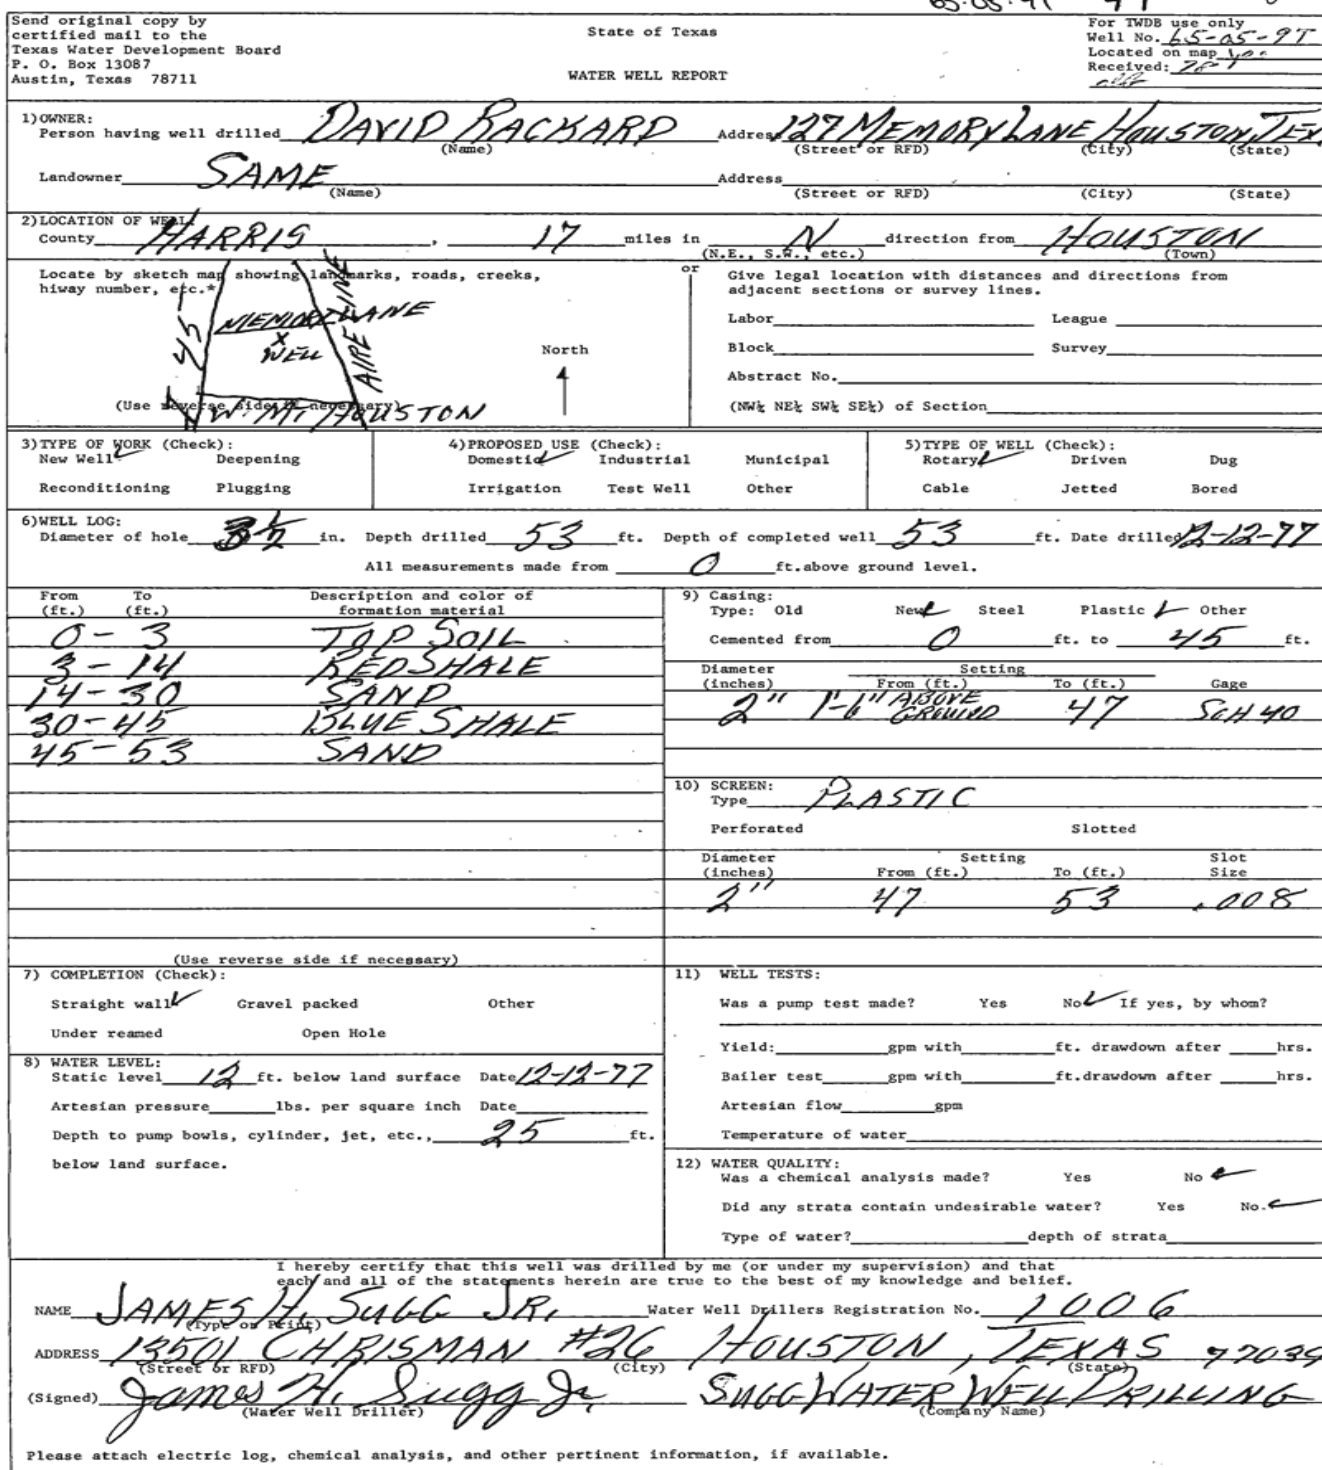 Send original copy by
certified mail to the
Texas Water Development Board
P. O. Box 13087
Austin, Texas 78711
State of Texas
WATER WELL REPORT
For TWDB use only
Well No. 65-05-9T
Located on map
Received:
1)OWNER:
Person having well drilled DAVID RACKARD Address 127 MEMORY LANE HOUSTON, TEX
(Name) (Street or RFD) (City) (State)
Landowner SAME Address
(Name) (Street or RFD) (City) (State)
2)LOCATION OF WELL:
County HARRIS, 17 miles in N direction from HOUSTON
(N.E., S.W., etc.) (Town)
Locate by sketch map showing landmarks, roads, creeks,
hiway number, etc.*
I 45
MEMORY LANE
X
WELL
AIRE LINE
W. Mt. HOUSTON
(Use reverse side if necessary)
North
or
Give legal location with distances and directions from
adjacent sections or survey lines.
Labor League
Block Survey
Abstract No.
(NW¼ NE¼ SW¼ SE¼) of Section
3)TYPE OF WORK (Check):
New Well ✓ Deepening
Reconditioning Plugging
4)PROPOSED USE (Check):
Domestic ✓ Industrial Municipal
Irrigation Test Well Other
5)TYPE OF WELL (Check):
Rotary ✓ Driven Dug
Cable Jetted Bored
6)WELL LOG:
Diameter of hole 3½ in. Depth drilled 53 ft. Depth of completed well 53 ft. Date drilled 12-12-77
All measurements made from 0 ft.above ground level.
From (ft.) To (ft.) Description and color of formation material
0 - 3 TOP SOIL
3 - 14 RED SHALE
14 - 30 SAND
30 - 45 BLUE SHALE
45 - 53 SAND
(Use reverse side if necessary)
9) Casing:
Type: Old New ✓ Steel Plastic ✓ Other
Cemented from 0 ft. to 45 ft.
Diameter (inches) Setting From (ft.) To (ft.) Gage
2" 1'-6" ABOVE GROUND 47 SCH 40
10) SCREEN:
Type PLASTIC
Perforated Slotted
Diameter (inches) Setting From (ft.) To (ft.) Slot Size
2" 47 53 .008
7) COMPLETION (Check):
Straight wall ✓ Gravel packed Other
Under reamed Open Hole
8) WATER LEVEL:
Static level 12 ft. below land surface Date 12-12-77
Artesian pressure lbs. per square inch Date
Depth to pump bowls, cylinder, jet, etc., 25 ft.
below land surface.
11) WELL TESTS:
Was a pump test made? Yes No ✓ If yes, by whom?
Yield: gpm with ft. drawdown after hrs.
Bailer test gpm with ft.drawdown after hrs.
Artesian flow gpm
Temperature of water
12) WATER QUALITY:
Was a chemical analysis made? Yes No ✓
Did any strata contain undesirable water? Yes No. ✓
Type of water? depth of strata
I hereby certify that this well was drilled by me (or under my supervision) and that
each and all of the statements herein are true to the best of my knowledge and belief.
NAME JAMES H. SUGG JR. Water Well Drillers Registration No. 1006
(Type or Print)
ADDRESS 13501 CHRISMAN #26 HOUSTON, TEXAS 77039
(Street or RFD) (City) (State)
(Signed) James H. Sugg Jr. SUGG WATER WELL DRILLING
(Water Well Driller) (Company Name)
Please attach electric log, chemical analysis, and other pertinent information, if available.